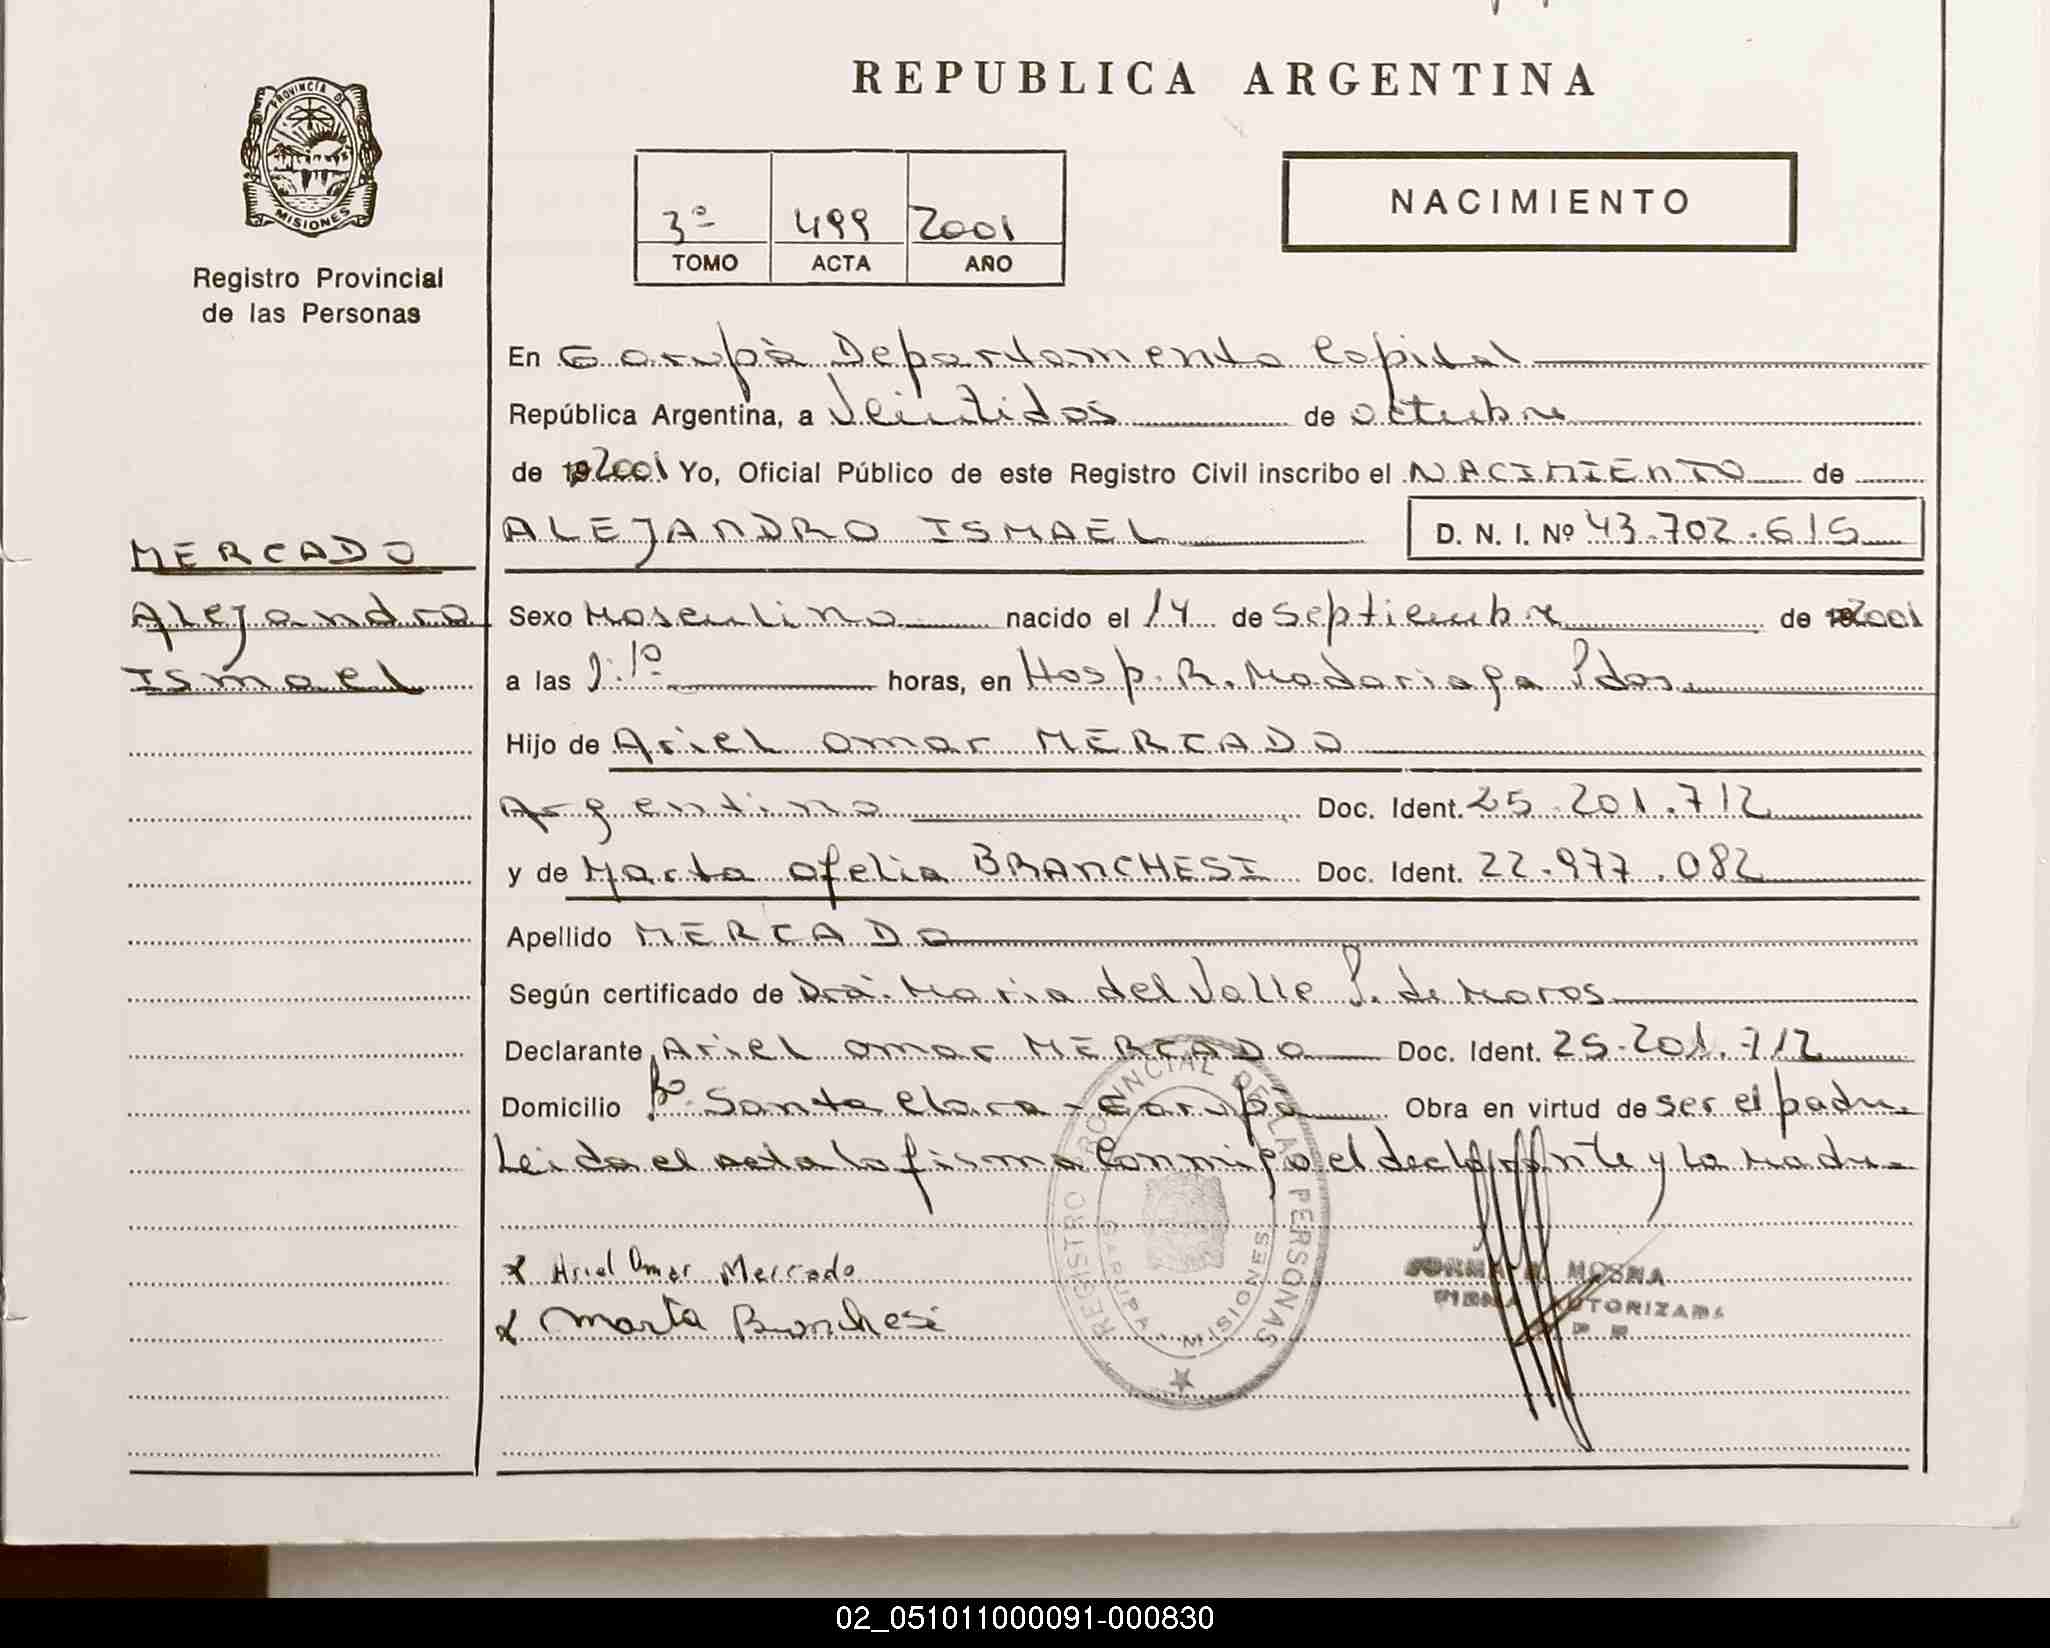 REPUBLICA ARGENTINA
PROVINCIA DE MISIONES
Registro Provincial
de las Personas
3º 499 2001
TOMO ACTA AÑO
NACIMIENTO
En Garupá Departamento Capital
República Argentina, a Veintidos de octubre
de 2001 Yo, Oficial Público de este Registro Civil inscribo el NACIMIENTO de
ALEJANDRO ISMAEL D. N. I. Nº 43.702.615
MERCADO
Alejandro
Ismael
Sexo Masculino nacido el 14 de Septiembre de 2001
a las horas, en Hosp. R. Madariaga Pdas.
Hijo de Ariel Omar MERCADO
Argentino Doc. Ident. 25.201.712
y de Marta Ofelia BRANCHESI Doc. Ident. 22.977.082
Apellido MERCADO
Según certificado de Dra. Maria del Valle P. de Maros
Declarante Ariel Omar MERCADO Doc. Ident. 25.201.712
Domicilio Bº Santa Clara - Garupá Obra en virtud de ser el padre.
Leida el acta la firma conmigo el declarante y la madre.
Ariel Omar Mercado
Marta Branchesi
REGISTRO PROVINCIAL DE LAS PERSONAS
GARUPA - MISIONES
NORMA MOSNA
FIRMA AUTORIZADA
02_051011000091-000830